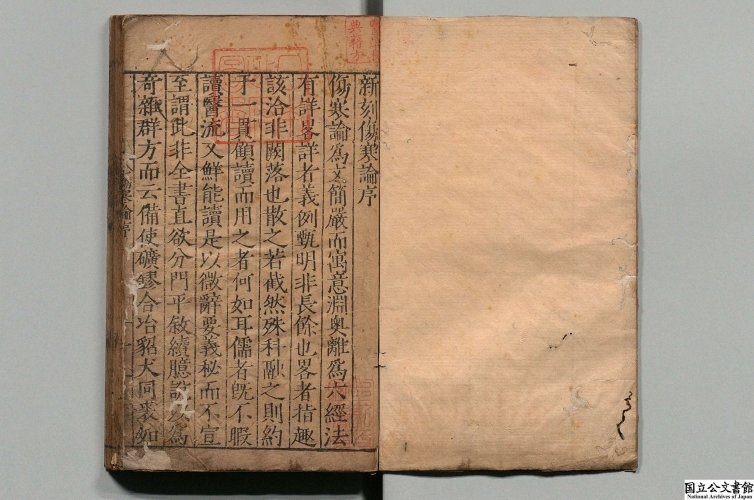 新刻傷寒論序
傷寒論爲文簡嚴而寓意淵奧離爲六經法
有詳畧詳者義例甄明非長餘也畧者指趣
該洽非闕落也散之若截然殊科融之則約
于一貫顧讀而用之者何如耳儒者旣不暇
讀醫流又鮮能讀是以微辭要義秘而不宣
至謂此非全書直欲分門平敘續臆說以爲
奇雜群方而云備使礦鏐合冶貂犬同裘如
寒論序
国立公文書館
National Archives of Japan